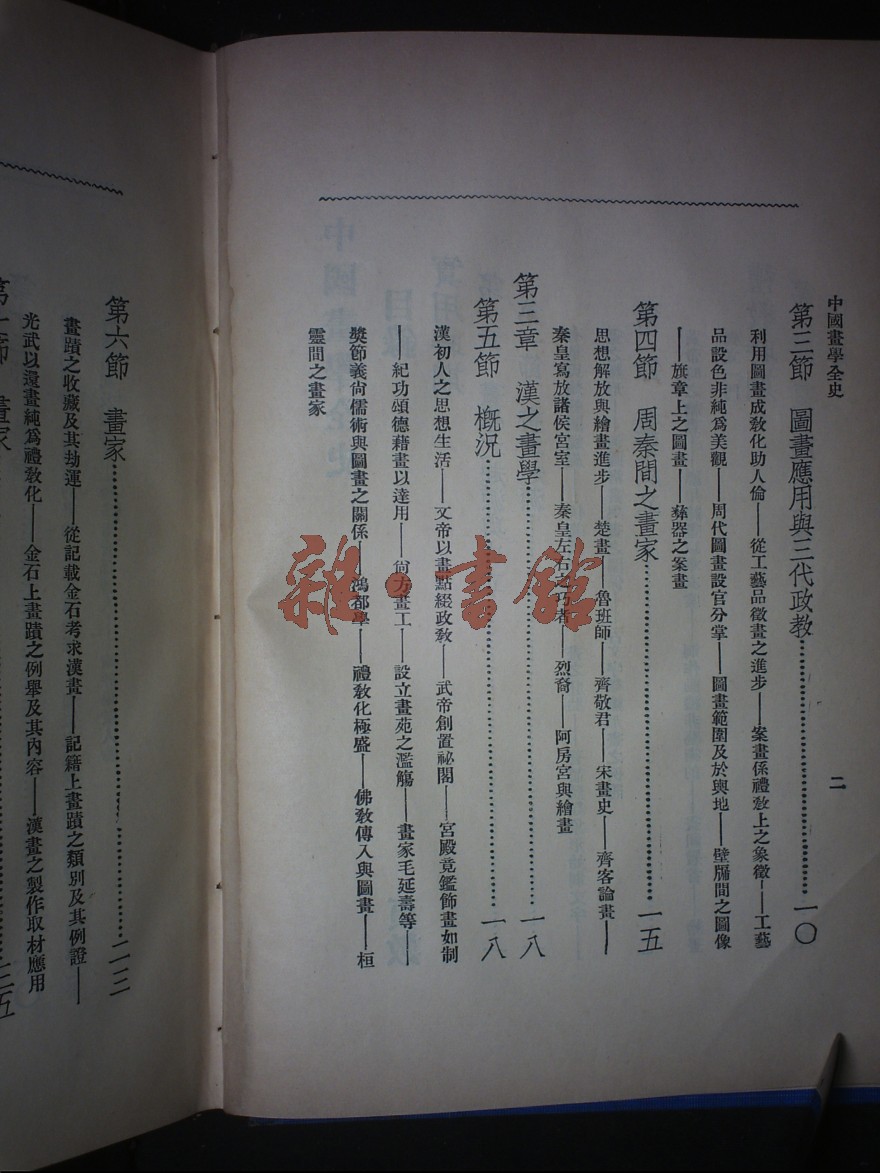 中國畫學全史
二
第三節　圖畫應用與三代政教……一〇
利用圖畫成教化助人倫——從工藝品徵畫之進步——案畫係禮教上之象徵——工藝
品設色非純爲美觀——周代圖畫設官分掌——圖畫範圍及於輿地——壁牖間之圖像
——旗章上之圖畫——彝器之案畫
第四節　周秦間之畫家……一五
思想解放與繪畫進步——楚畫——魯班師——齊敬君——宋畫史——齊客論畫——
秦皇寫放諸侯宮室——秦皇左右之巧者——烈裔——阿房宮與繪畫
第三章　漢之畫學……一八
第五節　槪況……一八
漢初人之思想生活——文帝以畫點綴政教——武帝創置祕閣——宮殿竟鑑飾畫如制
——紀功頌德藉畫以達用——尙方畫工——設立畫苑之濫觴——畫家毛延壽等——
獎節義尙儒術與圖畫之關係——鴻都學——禮教化極盛——佛教傳入與圖畫——桓
靈間之畫家
第六節　畫家……二三
畫蹟之收藏及其劫運——從記載金石考求漢畫——記籍上畫蹟之類別及其例證——
光武以還畫純爲禮教化——金石上畫蹟之例舉及其內容——漢畫之製作取材應用
雜·書館